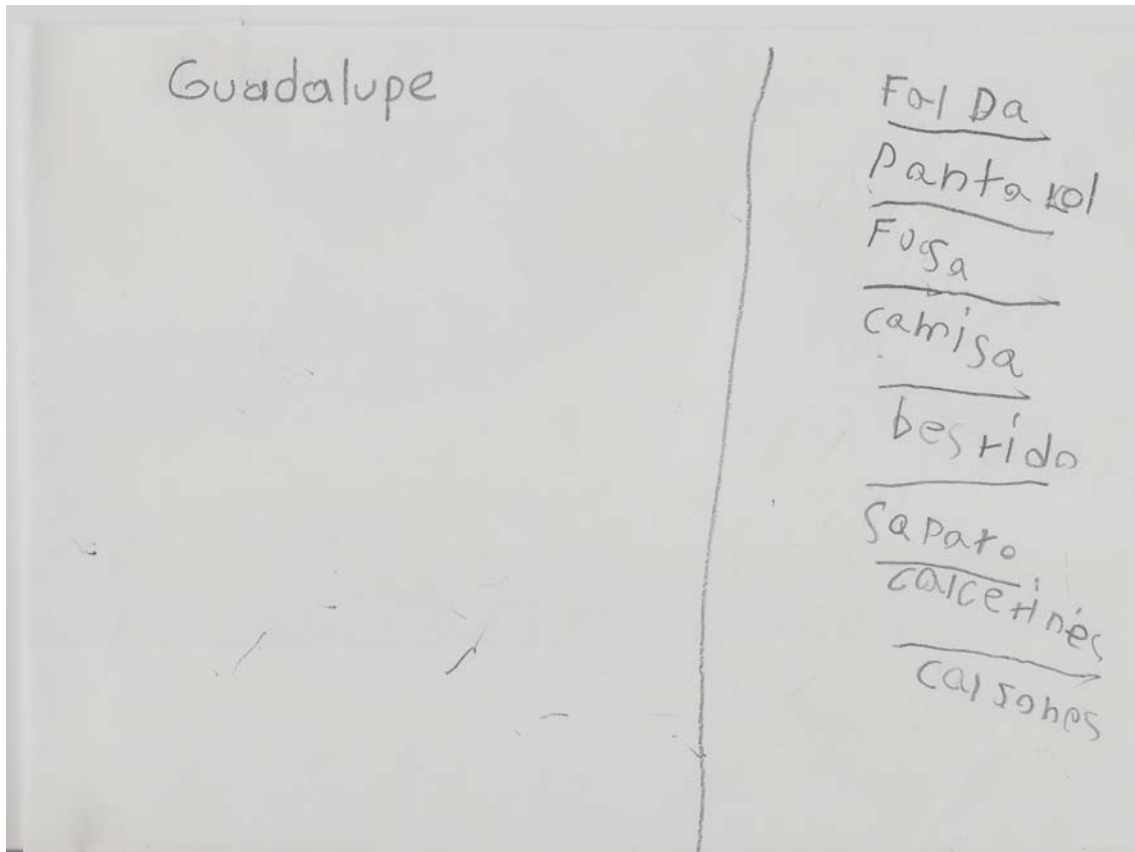 Guadalupe
Fal Da
Pantarol
Fusa
camisa
bestido
sapato
calcetines
calsones